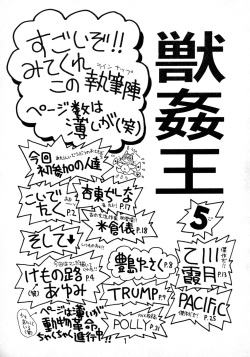 獣姦王
5
すごいぞ!!
みてくれ
この執筆陣
ラインナップ
ページ数は
薄いが(笑)
今回
初参加の人達
こいで
たく
P.2
杏東ぢーな
P.17
米倉俵
P.18
そして
けもの路
P.4
あゆみ
豊島たさく
P.8
乙川
霞月
P.13
TRUMP
P.9
PACIFIC
P.25
POLLY
P.31
ページは薄いが
動物革命
ちゃくちゃく進行中!!